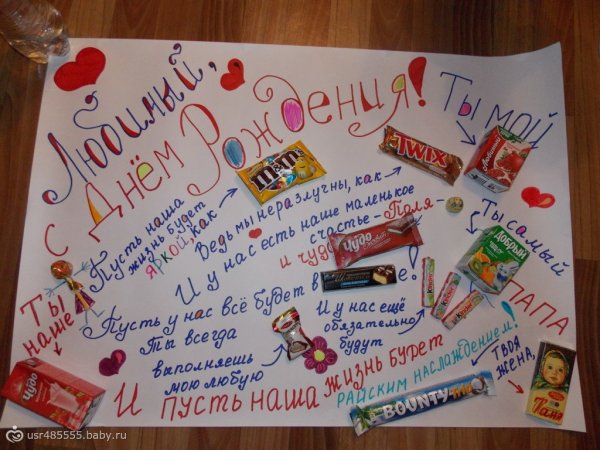 Любимый,
с Днём Рождения!
Ты мой
Любимый
Пусть наша
жизнь будет
яркой, как
m&m's
Ведь мы неразлучны, как
TWIX
И у нас есть наше маленькое
счастье - Поля -
и чудо
Чудо
Ты самый
Добрый
ПАПА
Пусть у нас всё будет в
!
Ты всегда
выполняешь
мою любую
И у нас ещё
обязательно
будут
Kinder
Kinder
Kinder
Ты
наше
Чудо
И пусть наша жизнь будет
райским наслаждением!
BOUNTY
Твоя
жена,
Таня
usr485555.baby.ru